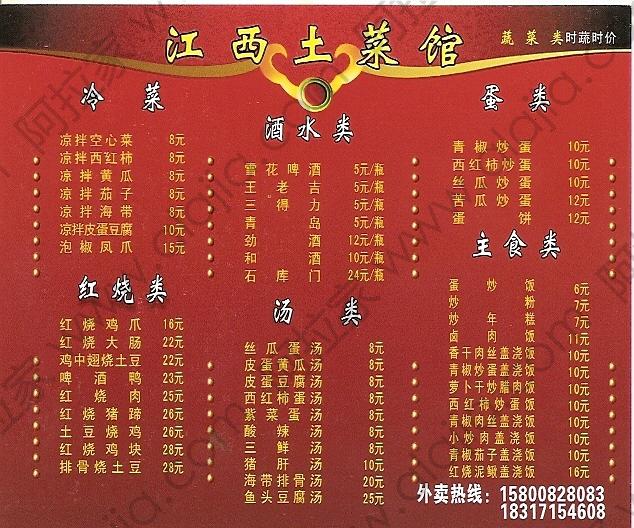 江西土菜馆
蔬菜类时蔬时价
冷菜
凉拌空心菜 8元
凉拌西红柿 8元
凉拌黄瓜 8元
凉拌茄子 8元
凉拌海带 8元
凉拌皮蛋豆腐 10元
泡椒凤爪 15元
红烧类
红烧鸡爪 16元
红烧大肠 22元
鸡中翅烧土豆 22元
啤酒鸭 23元
红烧肉 25元
红烧猪蹄 26元
土豆烧鸡 26元
红烧鸡块 28元
排骨烧土豆 28元
酒水类
雪花啤酒 5元/瓶
王老吉 5元/瓶
三得力 5元/瓶
青岛 5元/瓶
劲酒 12元/瓶
和酒 10元/瓶
石库门 24元/瓶
汤类
丝瓜蛋汤 8元
皮蛋黄瓜汤 8元
皮蛋豆腐汤 8元
西红柿蛋汤 8元
紫菜蛋汤 8元
酸辣汤 8元
三鲜汤 8元
猪肝汤 10元
海带排骨汤 20元
鱼头豆腐汤 25元
蛋类
青椒炒蛋 10元
西红柿炒蛋 10元
丝瓜炒蛋 10元
苦瓜炒蛋 12元
蛋饼 12元
主食类
蛋炒饭 6元
炒粉 7元
炒年糕 7元
卤肉饭 11元
香干肉丝盖浇饭 10元
青椒炒蛋盖浇饭 10元
萝卜干炒腊肉饭 10元
西红柿炒蛋饭 10元
青椒肉丝盖浇饭 10元
小炒肉盖浇饭 10元
青椒茄子盖浇饭 10元
红烧泥鳅盖浇饭 16元
外卖热线：15800828083
18317154608